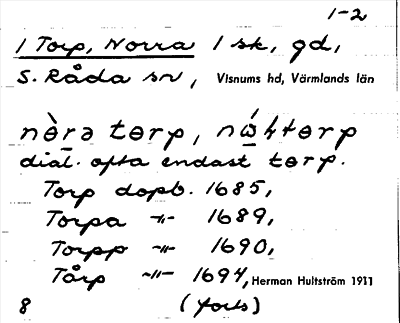 1-2
1 Torp, Norra 1 sk, gd,
S. Råda sn, Visnums hd, Värmlands län
dial. ofta endast tɵrp.
Torp dopb. 1685,
Torpa -"- 1689,
Torpp -"- 1690,
Tårp -"- 1694, Herman Hultström 1911
8 (forts)